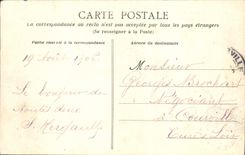 CARTE POSTALE
La correspondance au recto n'est pas acceptée par tous les pays étrangers
(Se renseigner à la Poste)
Partie réservée à la correspondance
Adresse du destinataire
19 Août 190
Monsieur
Georges Brochard
Négociant
à Courville
Eure & Loir
Le bonjour de
Nous deux